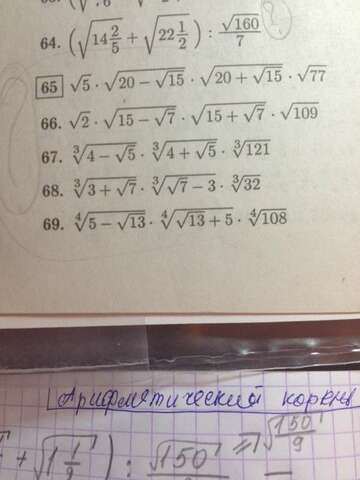 64. (√14 2/5 + √22 1/2) : √160/7
65 √5 · √20 − √15 · √20 + √15 · √77
66. √2 · √15 − √7 · √15 + √7 · √109
67. ∛4 − √5 · ∛4 + √5 · ∛121
68. ∛3 + √7 · ∛√7 − 3 · ∛32
69. ∜5 − √13 · ∜√13 + 5 · ∜108
Арифметический корень
+ √1 1/9) : √150 = √150/9